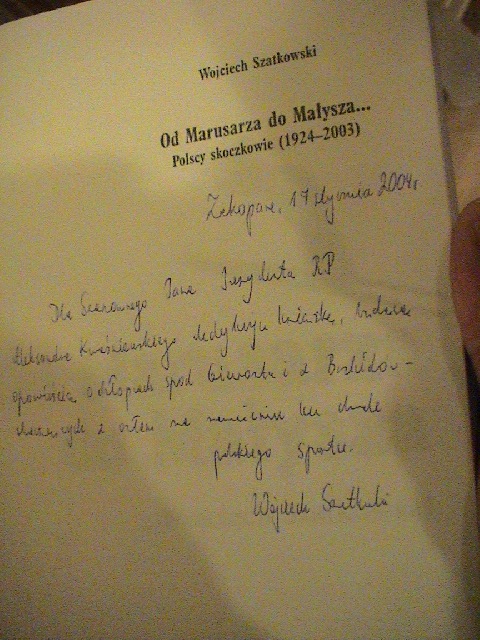 Wojciech Szatkowski
Od Marusarza do Małysza...
Polscy skoczkowie (1924–2003)
Zakopane, 17 stycznia 2004r.
Dla Szanownego Pana Prezydenta RP
Aleksandra Kwaśniewskiego dedykuję książkę, będącą
opowieścią o chłopcach spod Giewontu i z Beskidów –
skaczących z orłem na ramieniu ku chwale
polskiego sportu.
Wojciech Szatkowski